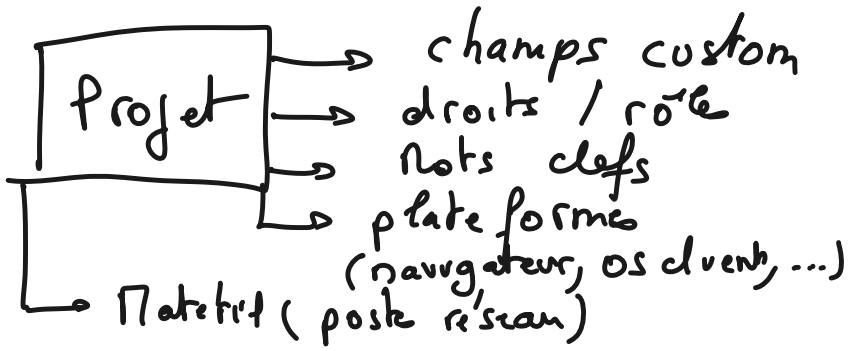 Projet
champs custom
droits / rôle
Mots clefs
plateformes
(navigateur, os client, ...)
Matériel (poste réseau)